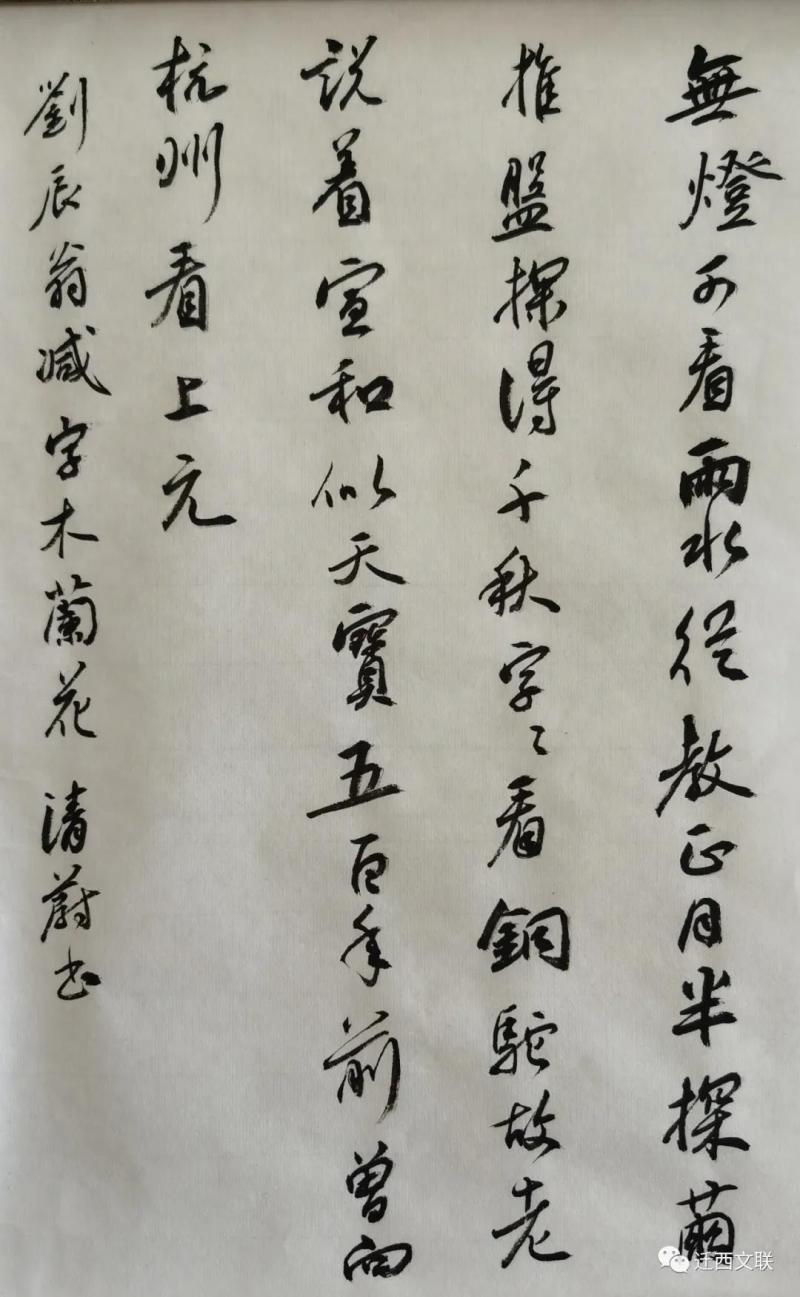 無燈可看雨水從教正月半探繭
推盤探得千秋字〻看銅駝故老
説着宣和似天寶五百年前曾向
杭州看上元
劉辰翁減字木蘭花 清蔚书
迁西文联